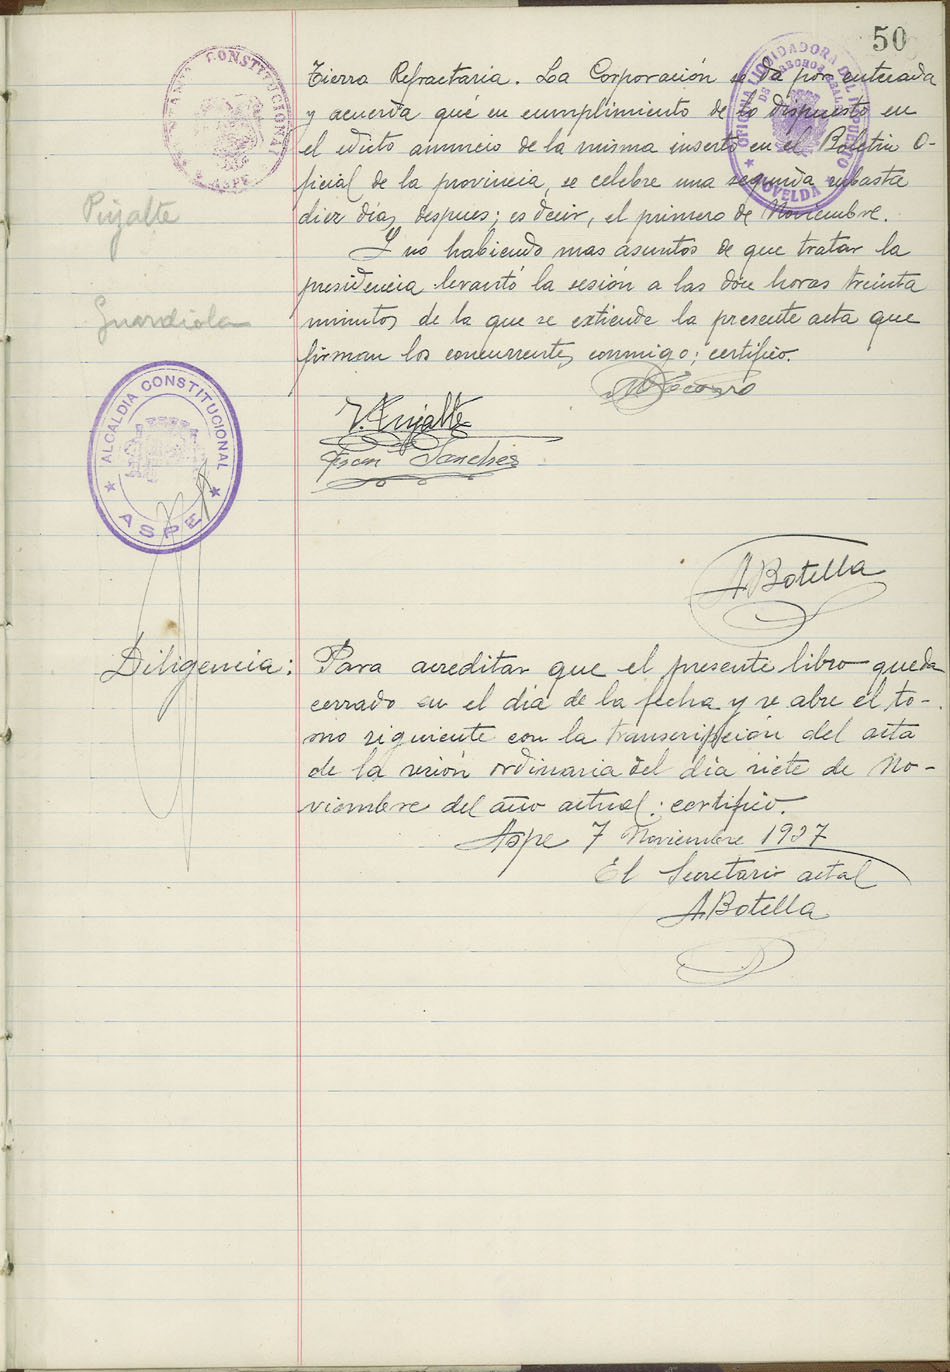 50
Tierra Refractaria. La Corporación se da por enterada
y acuerda que en cumplimiento de lo dispuesto en
el edicto anuncio de la misma inserto en el Boletin O-
ficial de la provincia, se celebre una segunda subasta
diez días despues; es decir, el primero de Noviembre.
Y no habiendo mas asuntos de que tratar la
presidencia levantó la sesión a las doce horas treinta
minutos de la que se extiende la presente acta que
firman los concurrentes conmigo; certifico.
CONSTITUCIONAL
ASPE
OFICINA LIQUIDADORA DEL IMPUESTO
DE DERECHOS REALES
NOVELDA
Pujalte
Guardiola
ALCALDIA CONSTITUCIONAL
ASPE
V. Pujalte
Fran Sanchez
A. Botella
Diligencia: Para acreditar que el presente libro queda
cerrado en el dia de la fecha y se abre el to-
mo siguiente con la transcripción del acta
de la sesión ordinaria del día siete de No-
viembre del año actual: certifico.
Aspe 7 Noviembre 1927
El Secretario actal
A. Botella